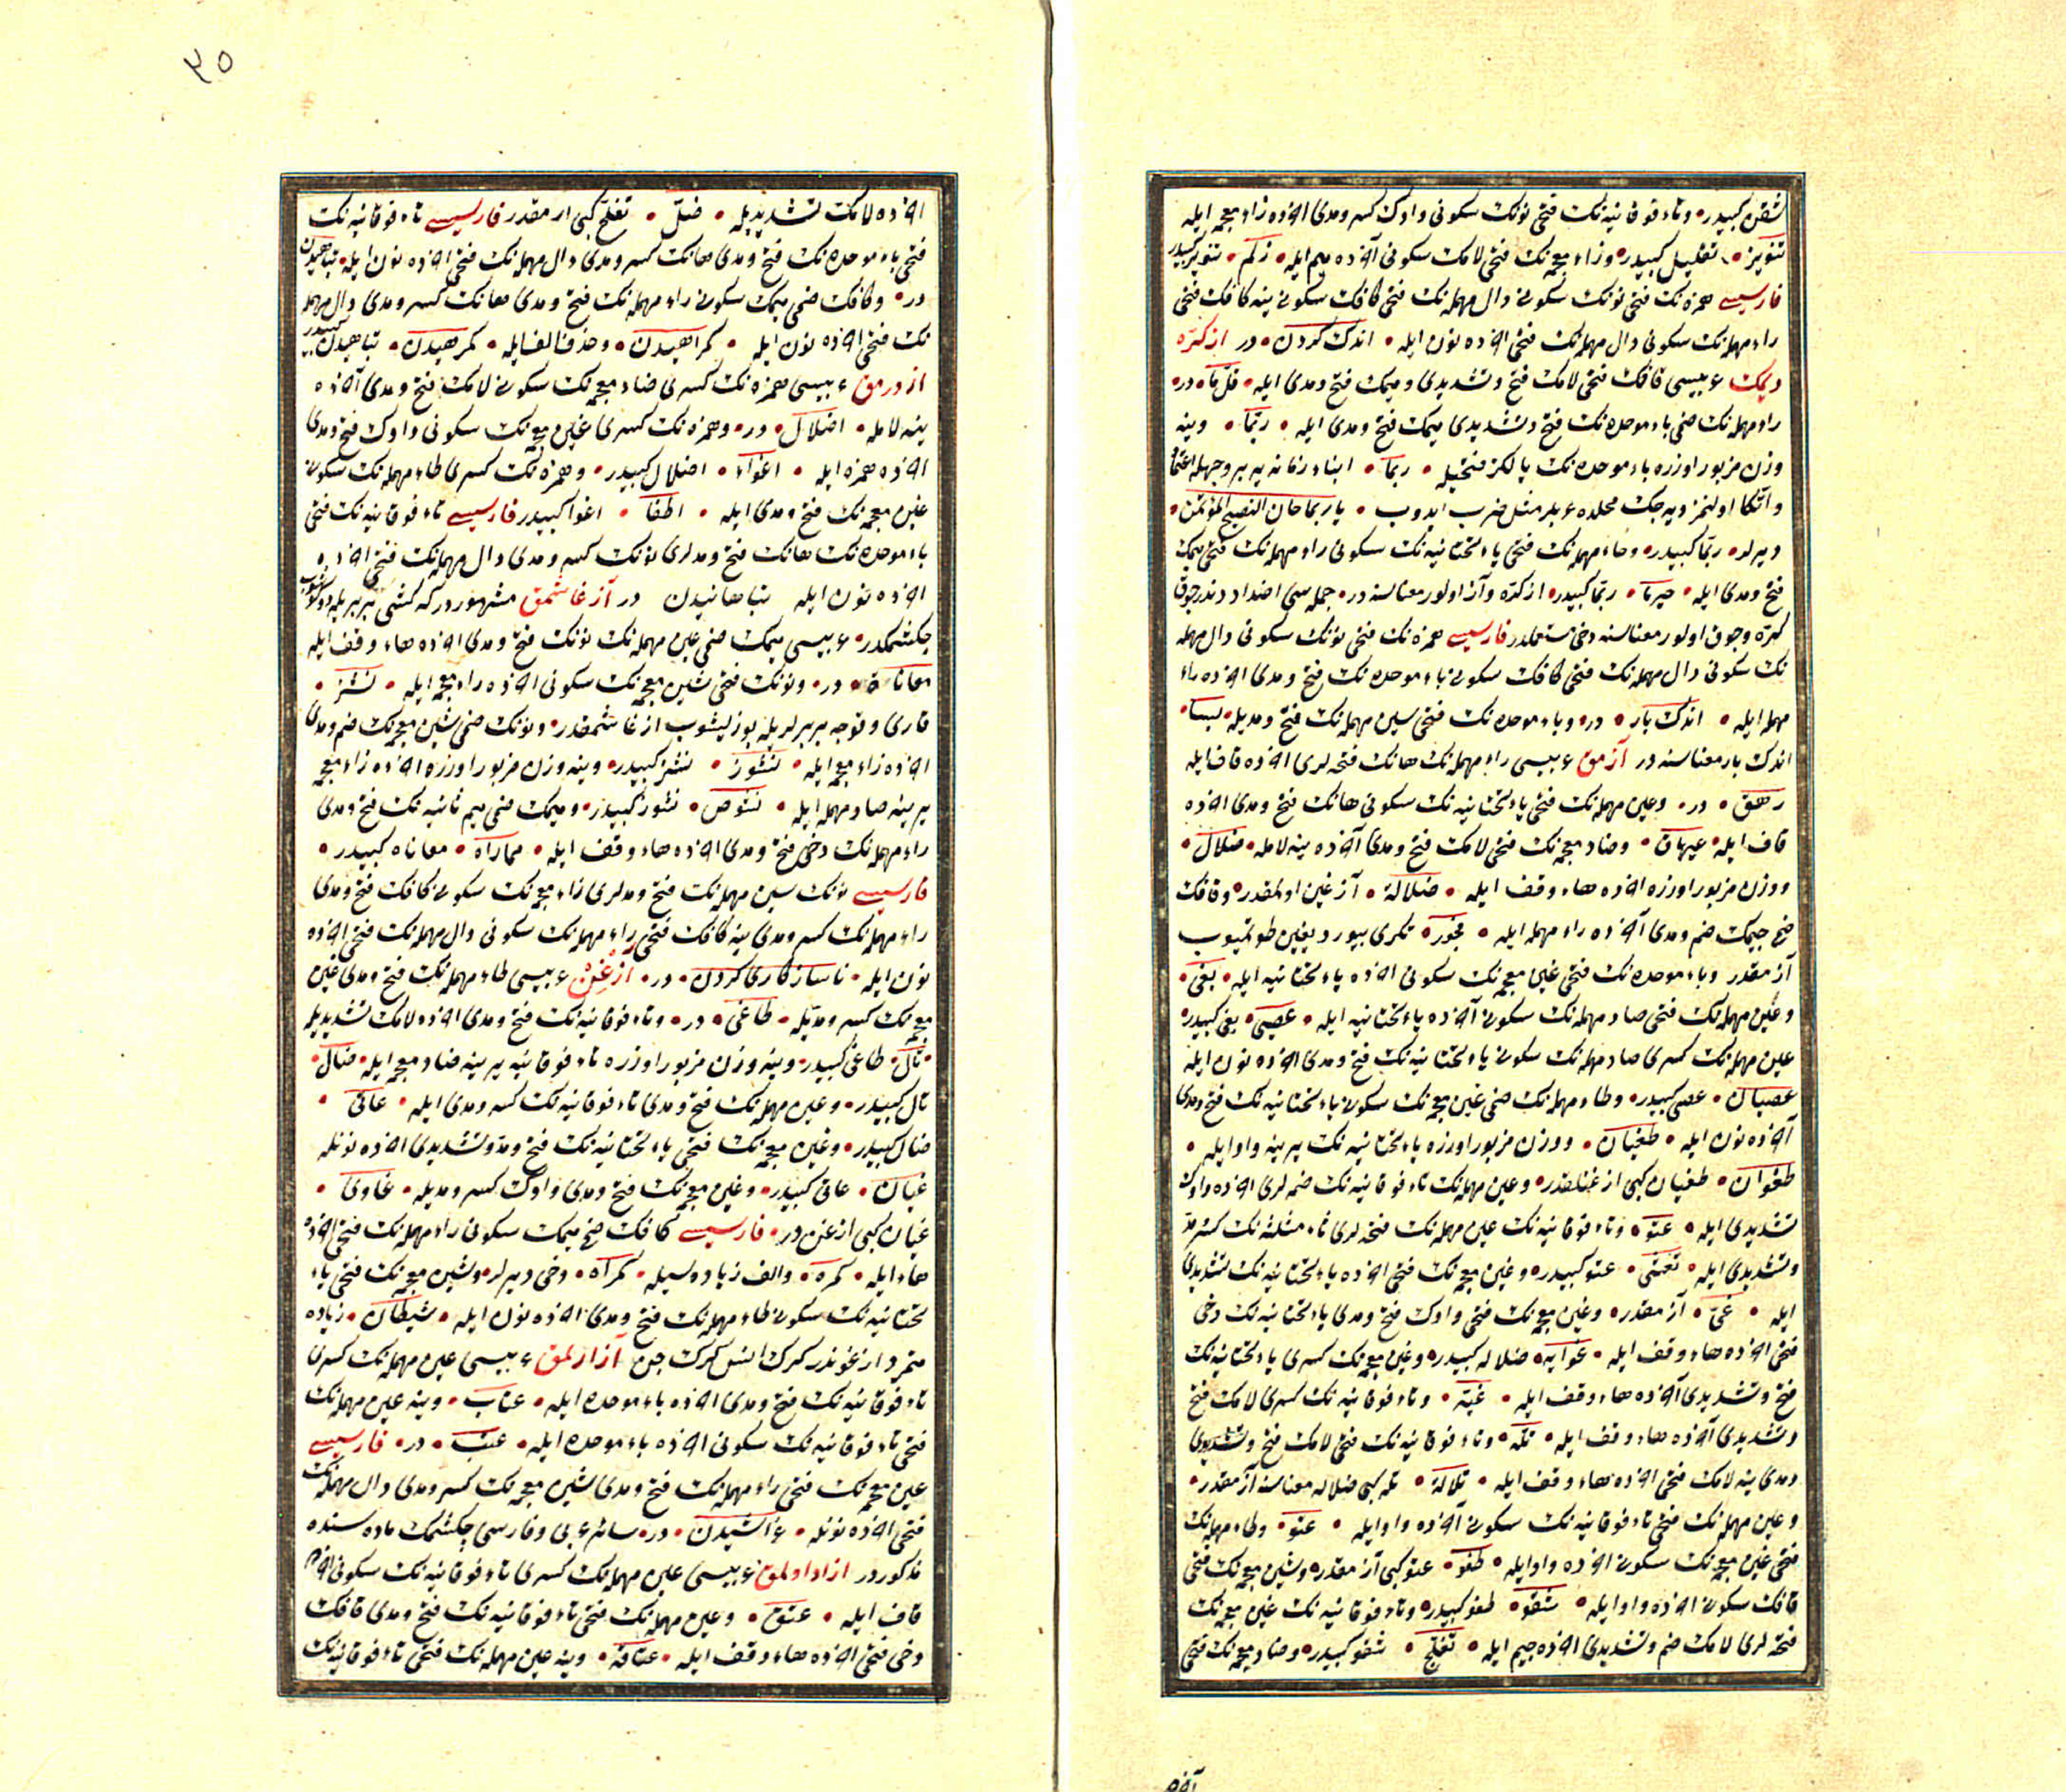 شقن كبیدر وتاء فوقانیه نك فتحی نونك سكونی واوك كسر ومدی آخرده زاء معجمه ایله
تنویز تقلیل كبیدر وزاء معجمه نك فتحی لامك سكونی آخرده میم ایله زلم تنویز كبیدر
فارسیسی همزه نك فتحی نونك سكونی دال مهمله نك فتحی كافك سكونی ینه كافك فتحی
راء مهمله نك سكونی دال مهمله نك فتحی آخرده نون ایله اندك كردن در ازكره
دیمك عربیسی قافك فتحی لامك فتح وتشدیدی ومیمك فتح ومدی ایله قلّما در
راء مهمله نك ضمی باء موحده نك فتح وتشدیدی میمك فتح ومدی ایله ربّما وینه
وزن مزبور اوزره باء موحده نك یالكز فتحیله ربما ابناء زمانه یه بر وجهله اعتماد
واتكا اولنمز دیه جك محلده عربلر مثل ضرب ایدوب یا ربما خان النصیح المؤتمن
دیرلر ربّما كبیدر وحاء مهمله نك فتحی یاء تحتانیه نك سكونی راء مهمله نك فتحی میمك
فتح ومدی ایله حیرما ربّما كبیدر ازكره واز اولور معناسنه در جمله سی اضداد دندر چوق
كره وچوق اولور معناسنه دخی مستعملدر فارسیسی همزه نك فتحی نونك سكونی دال مهمله
نك سكونی دال مهمله نك فتحی كافك سكونی باء موحده نك فتح ومدی آخرده راء
مهمله ایله اندك بار در وباء موحده نك فتحی سین مهمله نك فتح ومدیله بسا
اندك بار معناسنه در آزمق عربیسی راء مهمله نك هانك فتحه لری آخرده قاف ایله
رهق در وعین مهمله نك فتحی یاء تحتانیه نك سكونی هانك فتح ومدی آخرده
قاف ایله عیهاق وضاد معجمه نك فتحی لامك فتح ومدی آخرده ینه لامله ضلال
ووزن مزبور اوزره آخرده هاء وقف ایله ضلالة آزغین اولمقدر وفافك
فتح جیمك ضم ومدی آخرده راء مهمله ایله فجور تكری بیوردیغین طوتمیوب
آزمقدر وباء موحده نك فتحی غین معجمه نك سكونی آخرده یاء تحتانیه ایله بغی
وعین مهمله نك فتحی صاد مهمله نك سكونی آخرده یاء تحتانیه ایله عصی بغی كبیدر
عین مهمله نك كسری صاد مهمله نك سكونی یاء تحتانیه نك فتح ومدی آخرده نون ایله
عصیان عصی كبیدر وطاء مهمله نك ضمی غین معجمه نك سكونی یاء تحتانیه نك فتح ومدی
آخرده نون ایله طغیان ووزن مزبور اوزره یاء تحتانیه نك یرینه واو ایله
طغوان طغیان كبی ازغنلقدر وعین مهمله نك تاء فوقانیه نك ضمه لری آخرده واوك
تشدیدی ایله عتوّ وتاء فوقانیه نك عین مهمله نك فتحه لری ثاء مثلثه نك كسر مدّ
وتشدیدی ایله تعثّی عتو كبیدر وغین معجمه نك فتحی آخرده یاء تحتانیه نك تشدیدی
ایله غیّ آزمقدر وغین معجمه نك فتحی واوك فتح ومدی یاء تحتانیه نك دخی
فتحی آخرده هاء وقف ایله غوایة ضلاله كبیدر وغین معجمه نك كسری یاء تحتانیه نك
فتح وتشدیدی آخرده هاء وقف ایله غیّة وتاء فوقانیه نك كسری لامك فتح
وتشدیدی آخرده هاء وقف ایله تلّة وتاء فوقانیه نك فتحی لامك فتح وتشدیدی
ومدی ینه لامك فتحی آخرده هاء وقف ایله تلالة تله كبی ضلاله معناسنه آزمقدر
وعین مهمله نك فتحی تاء فوقانیه نك سكونی آخرده واو ایله عتو وطاء مهمله نك
فتحی غین معجمه نك سكونی آخرده واو ایله طغو عتو كبی آزمقدر وشین معجمه نك فتحی
قافك سكونی آخرده واو ایله شقو طغو كبیدر وتاء فوقانیه نك غین معجمه نك
فتحه لری لامك ضم وتشدیدی آخرده جیم ایله تغلّج شقو كبیدر وضاد معجمه نك فتحی
آخرده
٣٥
آخرده لامك تشدیدیله ضلّ تغلج كبی ازمقدر فارسیسی تاء فوقانیه نك
فتحی باء موحده نك فتح ومدی هانك كسر ومدی دال مهمله نك فتحی آخرده نون ایله تباهیدن
در وكافك ضمی میمك سكونی راء مهمله نك فتح ومدی هانك كسر ومدی دال مهمله
نك فتحی آخرده نون ایله كمراهیدن وحذف الف ایله كمرهیدن تباهیدن كبیدر
ازدرمق عربیسی همزه نك كسری ضاد معجمه نك سكونی لامك فتح ومدی آخرده
ینه لامله اضلال در وهمزه نك كسری غین معجمه نك سكونی واوك فتح ومدی
آخرده همزه ایله اغواء اضلال كبیدر وهمزه نك كسری طاء مهمله نك سكونی
غین معجمه نك فتح ومدی ایله اطغا اغوا كبیدر فارسیسی تاء فوقانیه نك فتحی
باء موحده نك هانك فتح ومدلری نونك كسر ومدی دال مهمله نك فتحی آخرده
آخرده نون ایله تباهانیدن در آزغاشمق مشهور در كه كشی بر بریله
چكشمكدر عربیسی میمك ضمی عین مهمله نك نونك فتح ومدی آخرده هاء وقف ایله
معاناة در ونونك فتحی شین معجمه نك سكونی آخرده زاء معجمه ایله نشز
قاری وقوجه بر برلریله بوزلیشوب ازغاشمقدر ونونك ضمی شین معجمه نك ضم ومدی
آخرده زاء معجمه ایله نشوز نشز كبیدر وینه وزن مزبور اوزره آخرده زاء معجمه
یرینه صاد مهمله ایله نشوص نشوز كبیدر ومیمك ضمی میم ثانیه نك فتح ومدی
راء مهمله نك دخی فتح ومدی آخرده هاء وقف ایله مماراة معاناه كبیدر
فارسیسی نونك سین مهمله نك فتح ومدلری زاء معجمه نك سكونی كافك فتح ومدی
راء مهمله نك كسر ومدی ینه كافك فتحی راء مهمله نك سكونی دال مهمله نك فتحی آخرده
نون ایله ناسازكاری كردن در ازغن عربیسی طاء مهمله نك فتح ومدی غین
معجمه نك كسر ومدّیله طاغی در وتاء فوقانیه نك فتح ومدی آخرده لامك تشدیدیله
تالّ طاغی كبیدر وینه وزن مزبور اوزره تاء فوقانیه یرینه ضاد معجمه ایله ضالّ
تال كبیدر وعین مهمله نك فتح ومدی تاء فوقانیه نك كسر ومدی ایله عاتی
ضال كبیدر وغین معجمه نك فتحی یاء تحتانیه نك فتح ومدّ وتشدیدی آخرده نونله
غیان عاتی كبیدر وغین معجمه نك فتح ومدی واوك كسر ومدیله غاوی
غیان كبی ازغن در فارسیسی كافك ضمی میمك سكونی راء مهمله نك فتحی آخرده
هاء ایله كمره والف زیاده سیله كمراه دخی دیرلر وشین معجمه نك فتحی یاء
تحتانیه نك سكونی طاء مهمله نك فتح ومدی آخرده نون ایله شیطان زیاده
متمرد ازغوندر كرك انس كرك جن آزارلمق عربیسی عین مهمله نك كسری
تاء فوقانیه نك فتح ومدی آخرده باء موحده ایله عتاب وینه عین مهمله نك
فتحی تاء فوقانیه نك سكونی آخرده باء موحده ایله عتب در فارسیسی
غین معجمه نك فتحی راء مهمله نك فتح ومدی شین معجمه نك كسر ومدی دال مهمله نك
فتحی آخرده نونله غراشیدن در سائر عربی وفارسی چكشمك ماده سنده
مذكوردر ازاد اولمق عربیسی عین مهمله نك كسری تاء فوقانیه نك سكونی آخرده
قاف ایله عتق وعین مهمله نك فتحی تاء فوقانیه نك فتح ومدی قافك
دخی فتحی آخرده هاء وقف ایله عتاقة وینه عین مهمله نك فتحی تاء فوقانیه نك